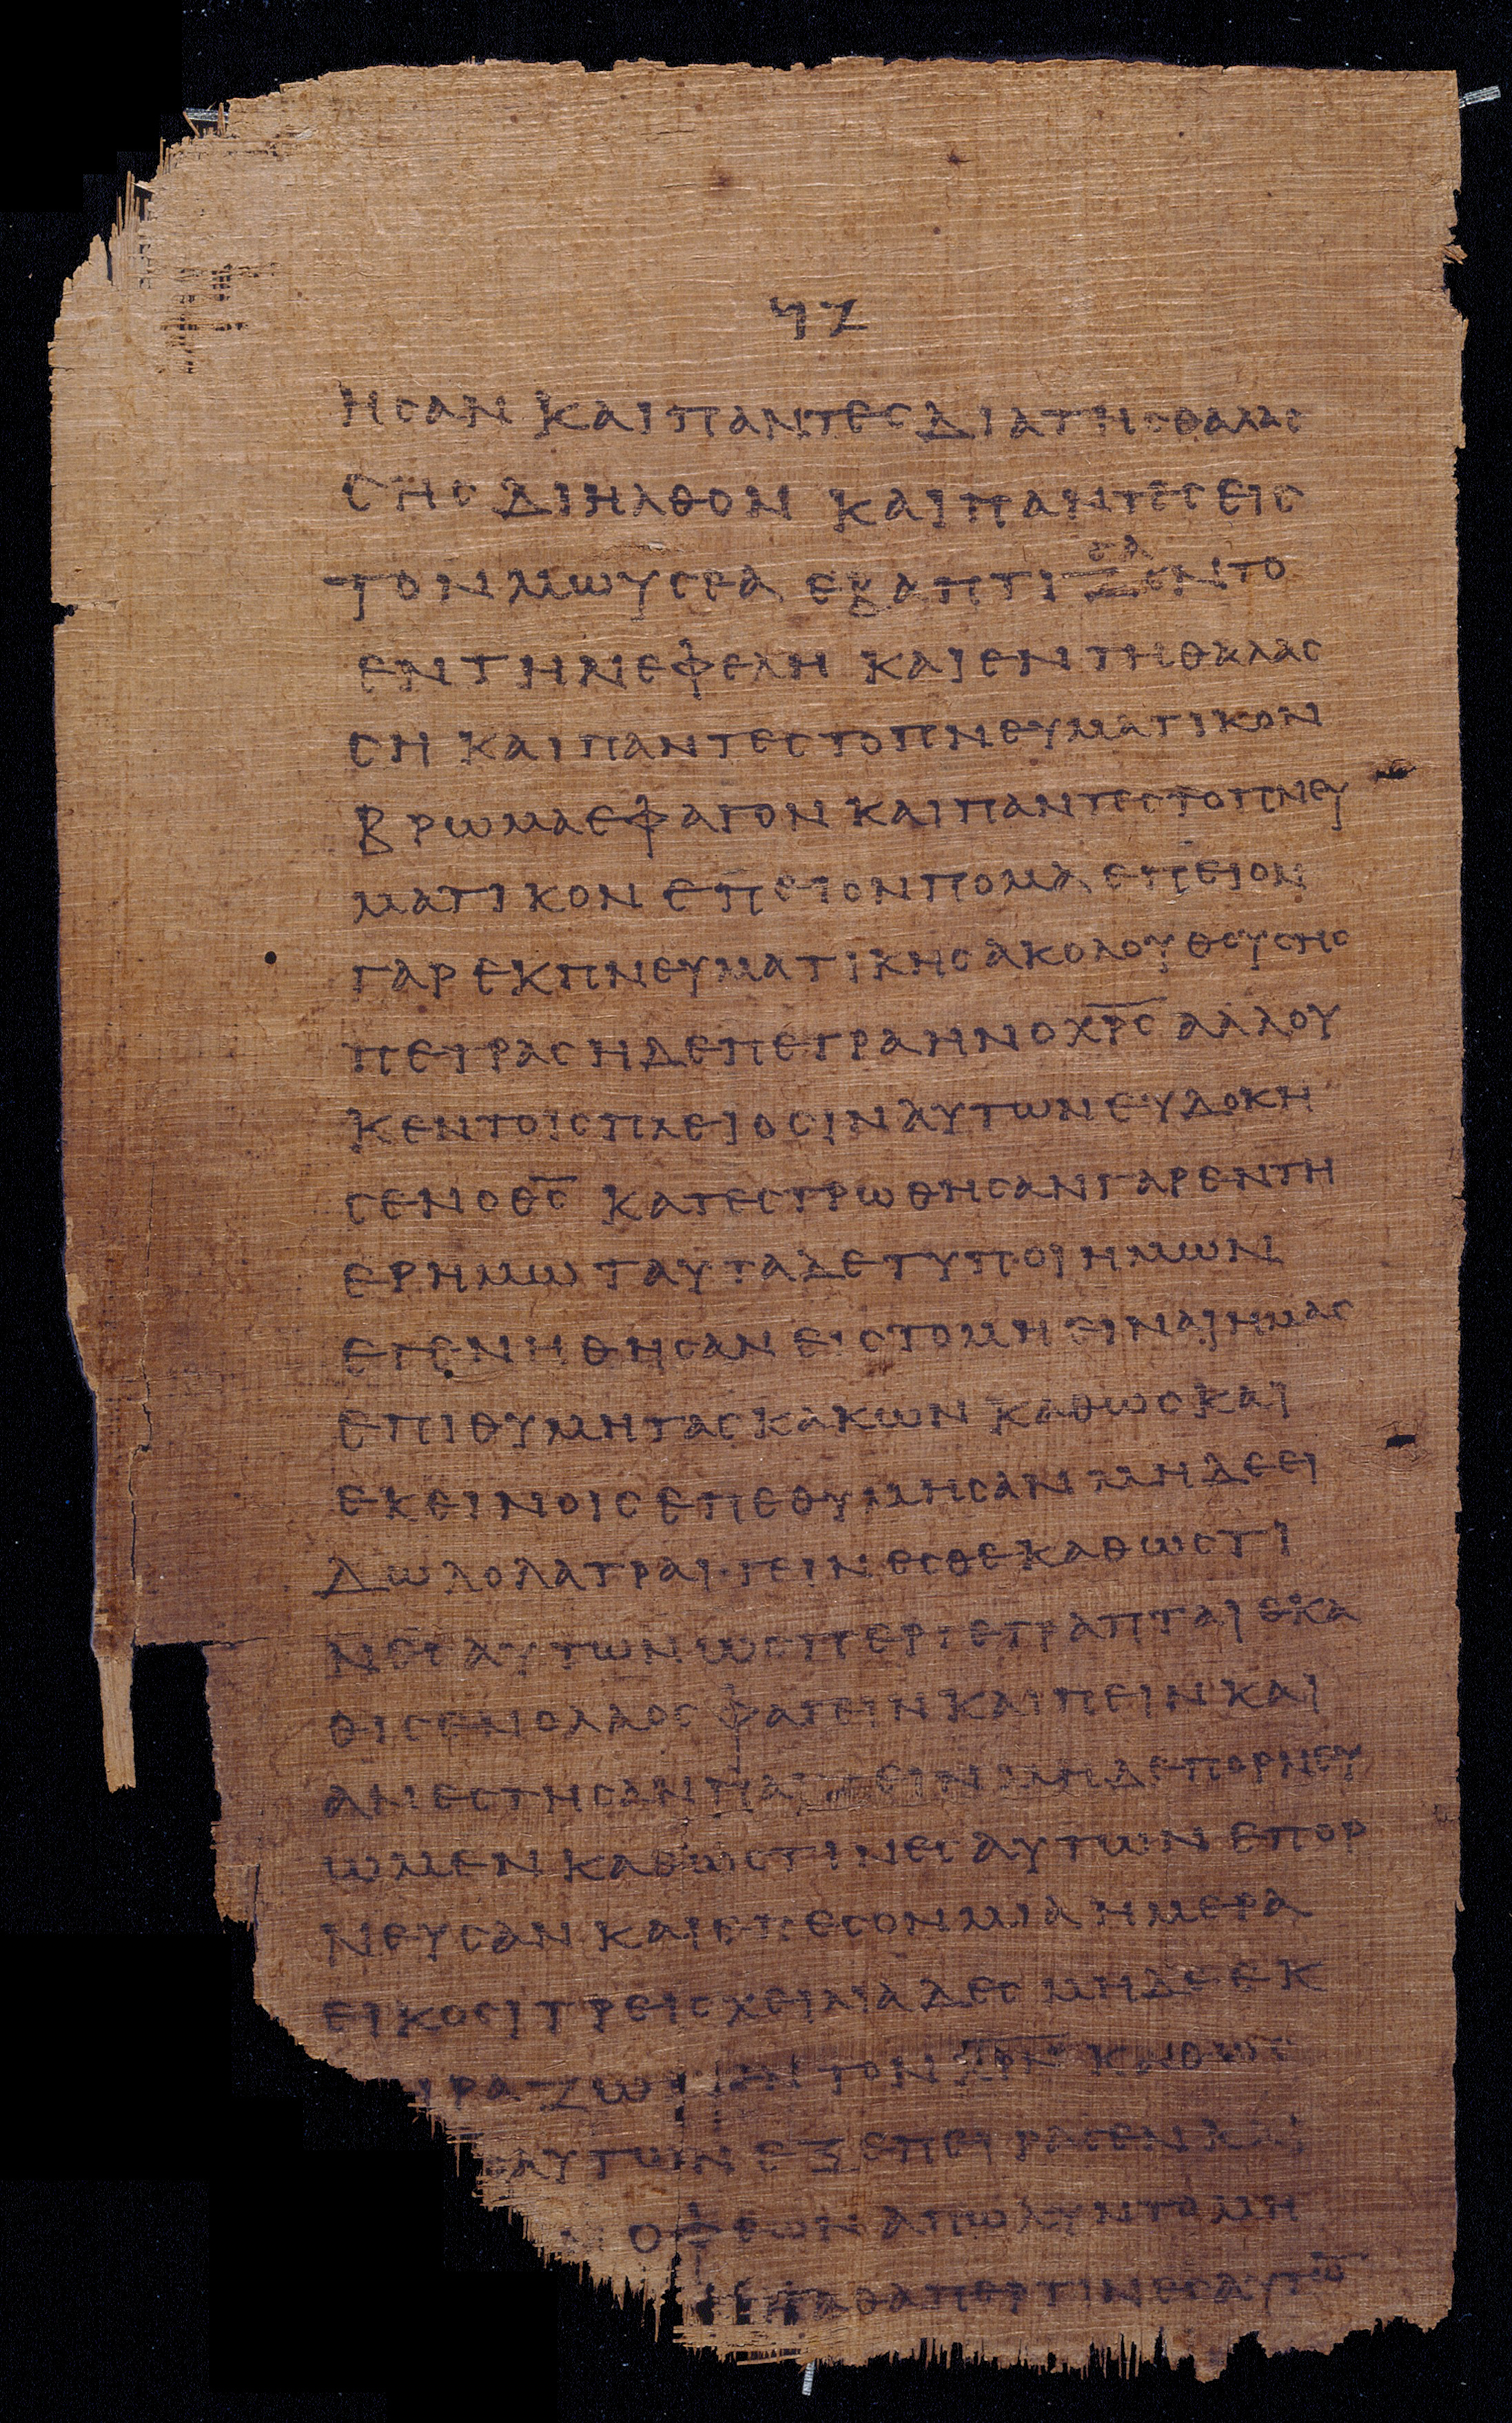 ϟζ
ησαν και παντες δια της θαλας
σης διηλθον και παντες εις
τον μωυσεα εβαπτιζοντο
εν τη νεφελη και εν τη θαλας
ση και παντες το πνευματικον
βρωμα εφαγον και παντες το πνευ
ματικον επειον πομα επειον
γαρ εκ πνευματικης ακολουθουσης
πετρας η δε πετρα ην ο χρ̅ς̅ αλλ ου
κ εν τοις πλειοσιν αυτων ευδοκη
σεν ο θ̅ς̅ κατεστρωθησαν γαρ εν τη
ερημω ταυτα δε τυποι ημων
εγενηθησαν εις το μη ειναι ημας
επιθυμητας κακων καθως και
εκεινοις επεθυμησαν μηδε ει
δωλολατραι γεινεσθε καθως τι
νες αυτων ωσπερ γεγραπται εκα
θισεν ο λαος φαγειν και πειν και
ανεστησαν παιζειν μηδε πορνευ
ωμεν καθως τινες αυτων επορ
νευσαν και επεσον μια ημερα
εικοσι τρεις χειλιαδες μηδε εκ
ιραζωμεν τον χρ̅ν̅ καθως
αυτων εξεπειρασεν και
ν οφεων απωλυντο μη
καθαπερ τινες αυτω̅